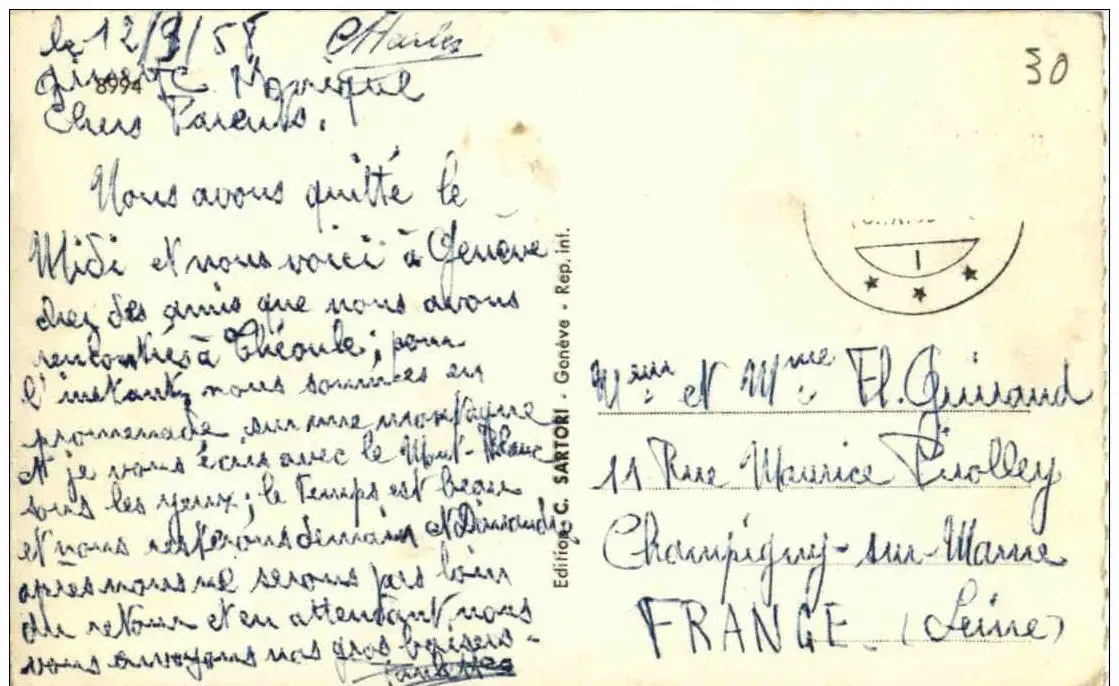 le 12/9/58 Charles
8994
Chers Parents.
Nous avons quitté le
Midi et nous voici à Genève
chez des amis que nous avons
rencontrés à Théoule; pour
l'instant, nous sommes en
promenade sur une montagne
et je vous écris avec le Mont-Blanc
sous les yeux; le temps est beau
et nous resterons demain et Dimanche
après nous ne serons pas loin
du retour et en attendant, nous
vous envoyons nos gros baisers
Edition C. SARTORI - Genève - Rep. int.
30
1
et Mme
11 Rue Maurice
Champigny-sur-Marne
FRANCE. (Seine)